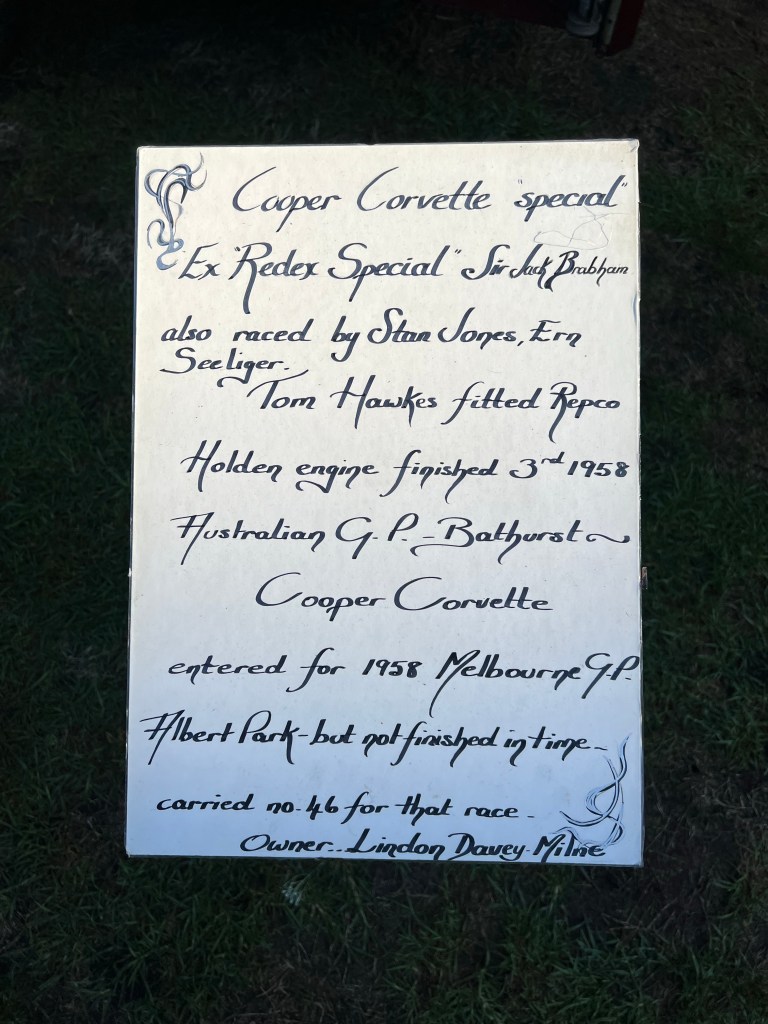 Cooper Corvette "special"
Ex "Redex Special" Sir Jack Brabham
also raced by Stan Jones, Ern
Seeliger.
Tom Hawkes fitted Repco
Holden engine finished 3rd 1958
Australian G.P. - Bathurst ~
Cooper Corvette
entered for 1958 Melbourne G.P.
Albert Park - but not finished in time -
carried no. 46 for that race -
Owner... Lindon Davey-Milne